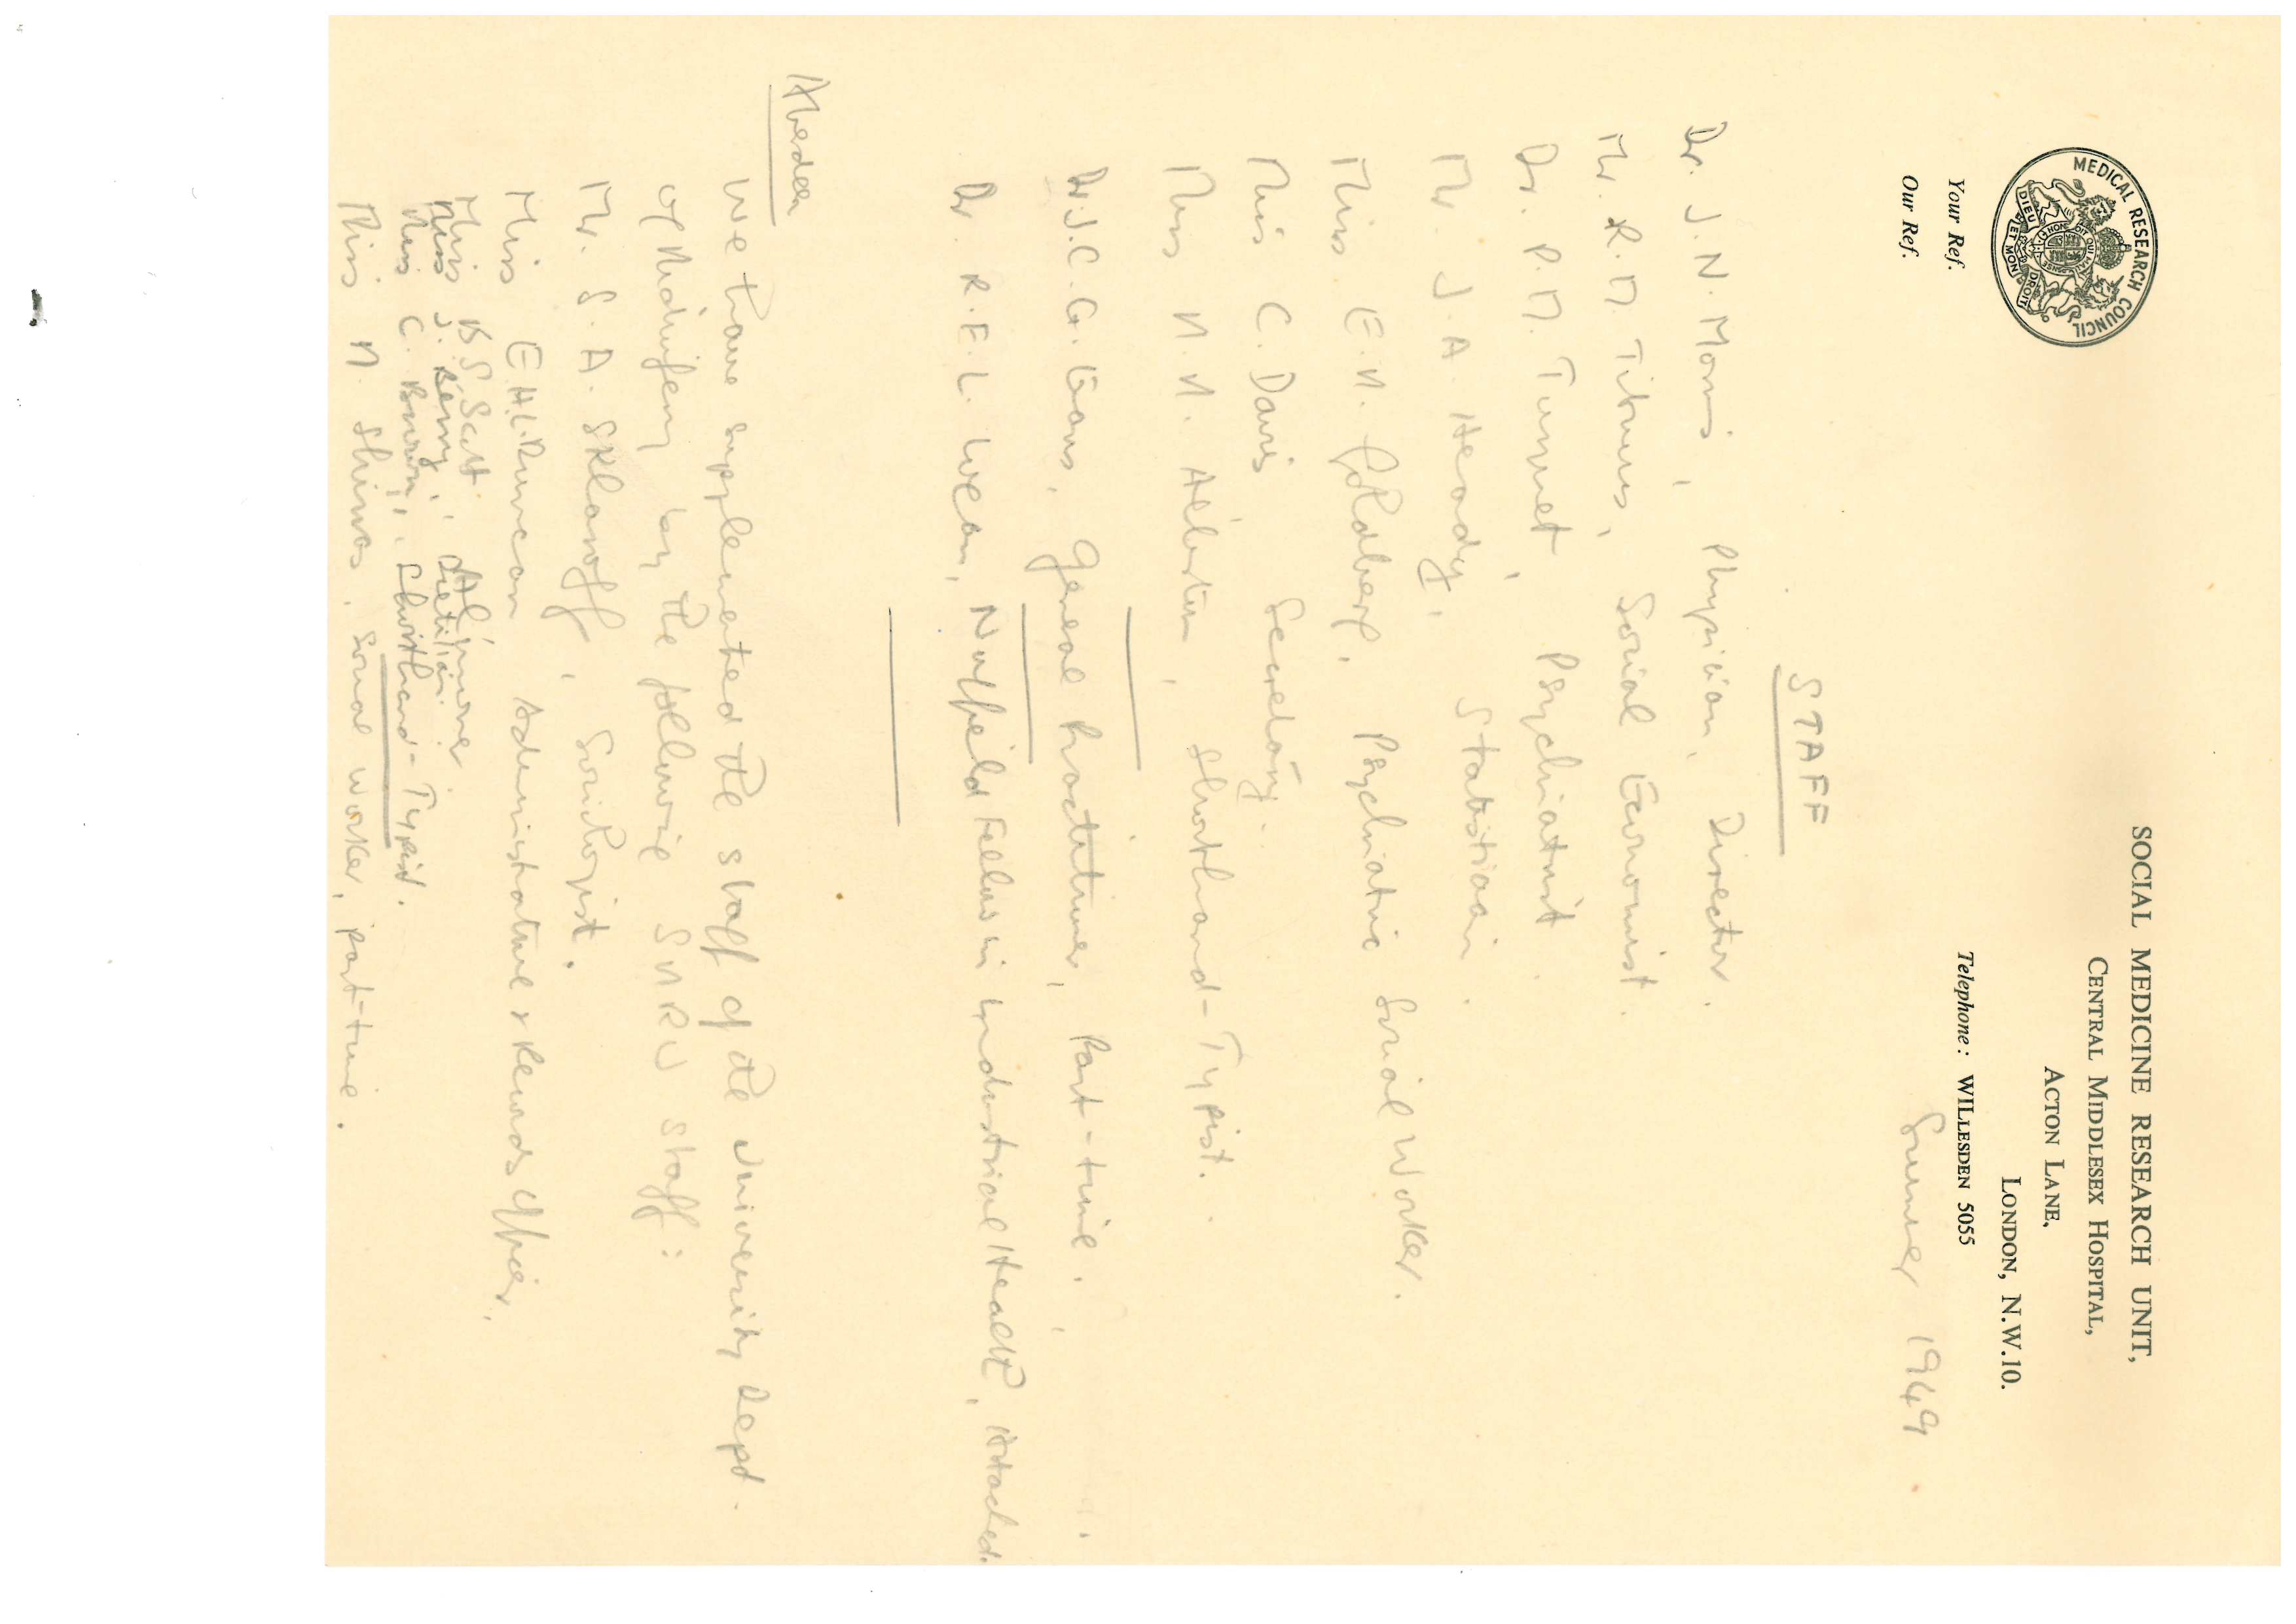 SOCIAL MEDICINE RESEARCH UNIT,
CENTRAL MIDDLESEX HOSPITAL,
ACTON LANE,
LONDON, N.W.10.
MEDICAL RESEARCH COUNCIL
DIEU ET MON DROIT
Your Ref.
Telephone: WILLESDEN 5055
Our Ref.
Summer 1949
STAFF
Dr. J. N. Morris, Physician, Director.
Mr. R. M. Titmuss, Social Economist.
Dr. P. M. Turquet, Psychiatrist.
Mr. J. A. Heady, Statistician.
Miss E. M. Goldberg, Psychiatric Social Worker.
Miss C. Davis Secretary.
Miss M. M. Shorthand-Typist.
Dr. J. C. G. Evans, General Practitioner, Part-time.
Dr. R. E. W. Nuffield Fellow in Industrial Health, Attached.
Aberdeen
We have supplemented the staff of the University Dept.
of Midwifery by the following SMRU staff:
Mr. S. A. Sklaroff, Sociologist.
Miss E.H.L. Duncan Administrative & Records Officer.
Miss B. S. Scott, Almoner
Miss J. Berry, Dietitian
Miss C. Brown, Shorthand-Typist.
Miss M. Shirras, Social worker, part-time.